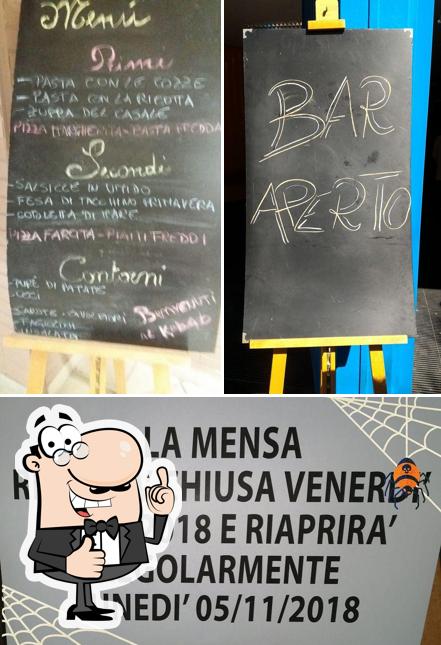 Menú
Primi
- PASTA CON LE COZZE
- PASTA CON LA RICOTTA
- ZUPPA DEL CASALE
PIZZA MARGHERITA - PASTA FREDDA
Secondi
- SALSICCE IN UMIDO
- FESA DI TACCHINO PRIMAVERA
- COTOLETTA DI MARE
PIZZA FARCITA - PIATTI FREDDI
Contorni
- PURÈ DI PATATE
- CECI
- FAGIOLINI
BENVENUTI
AL KEBAB
BAR
APERTO
LA MENSA
CHIUSA VENERDI
18 E RIAPRIRA'
GOLARMENTE
NEDI' 05/11/2018